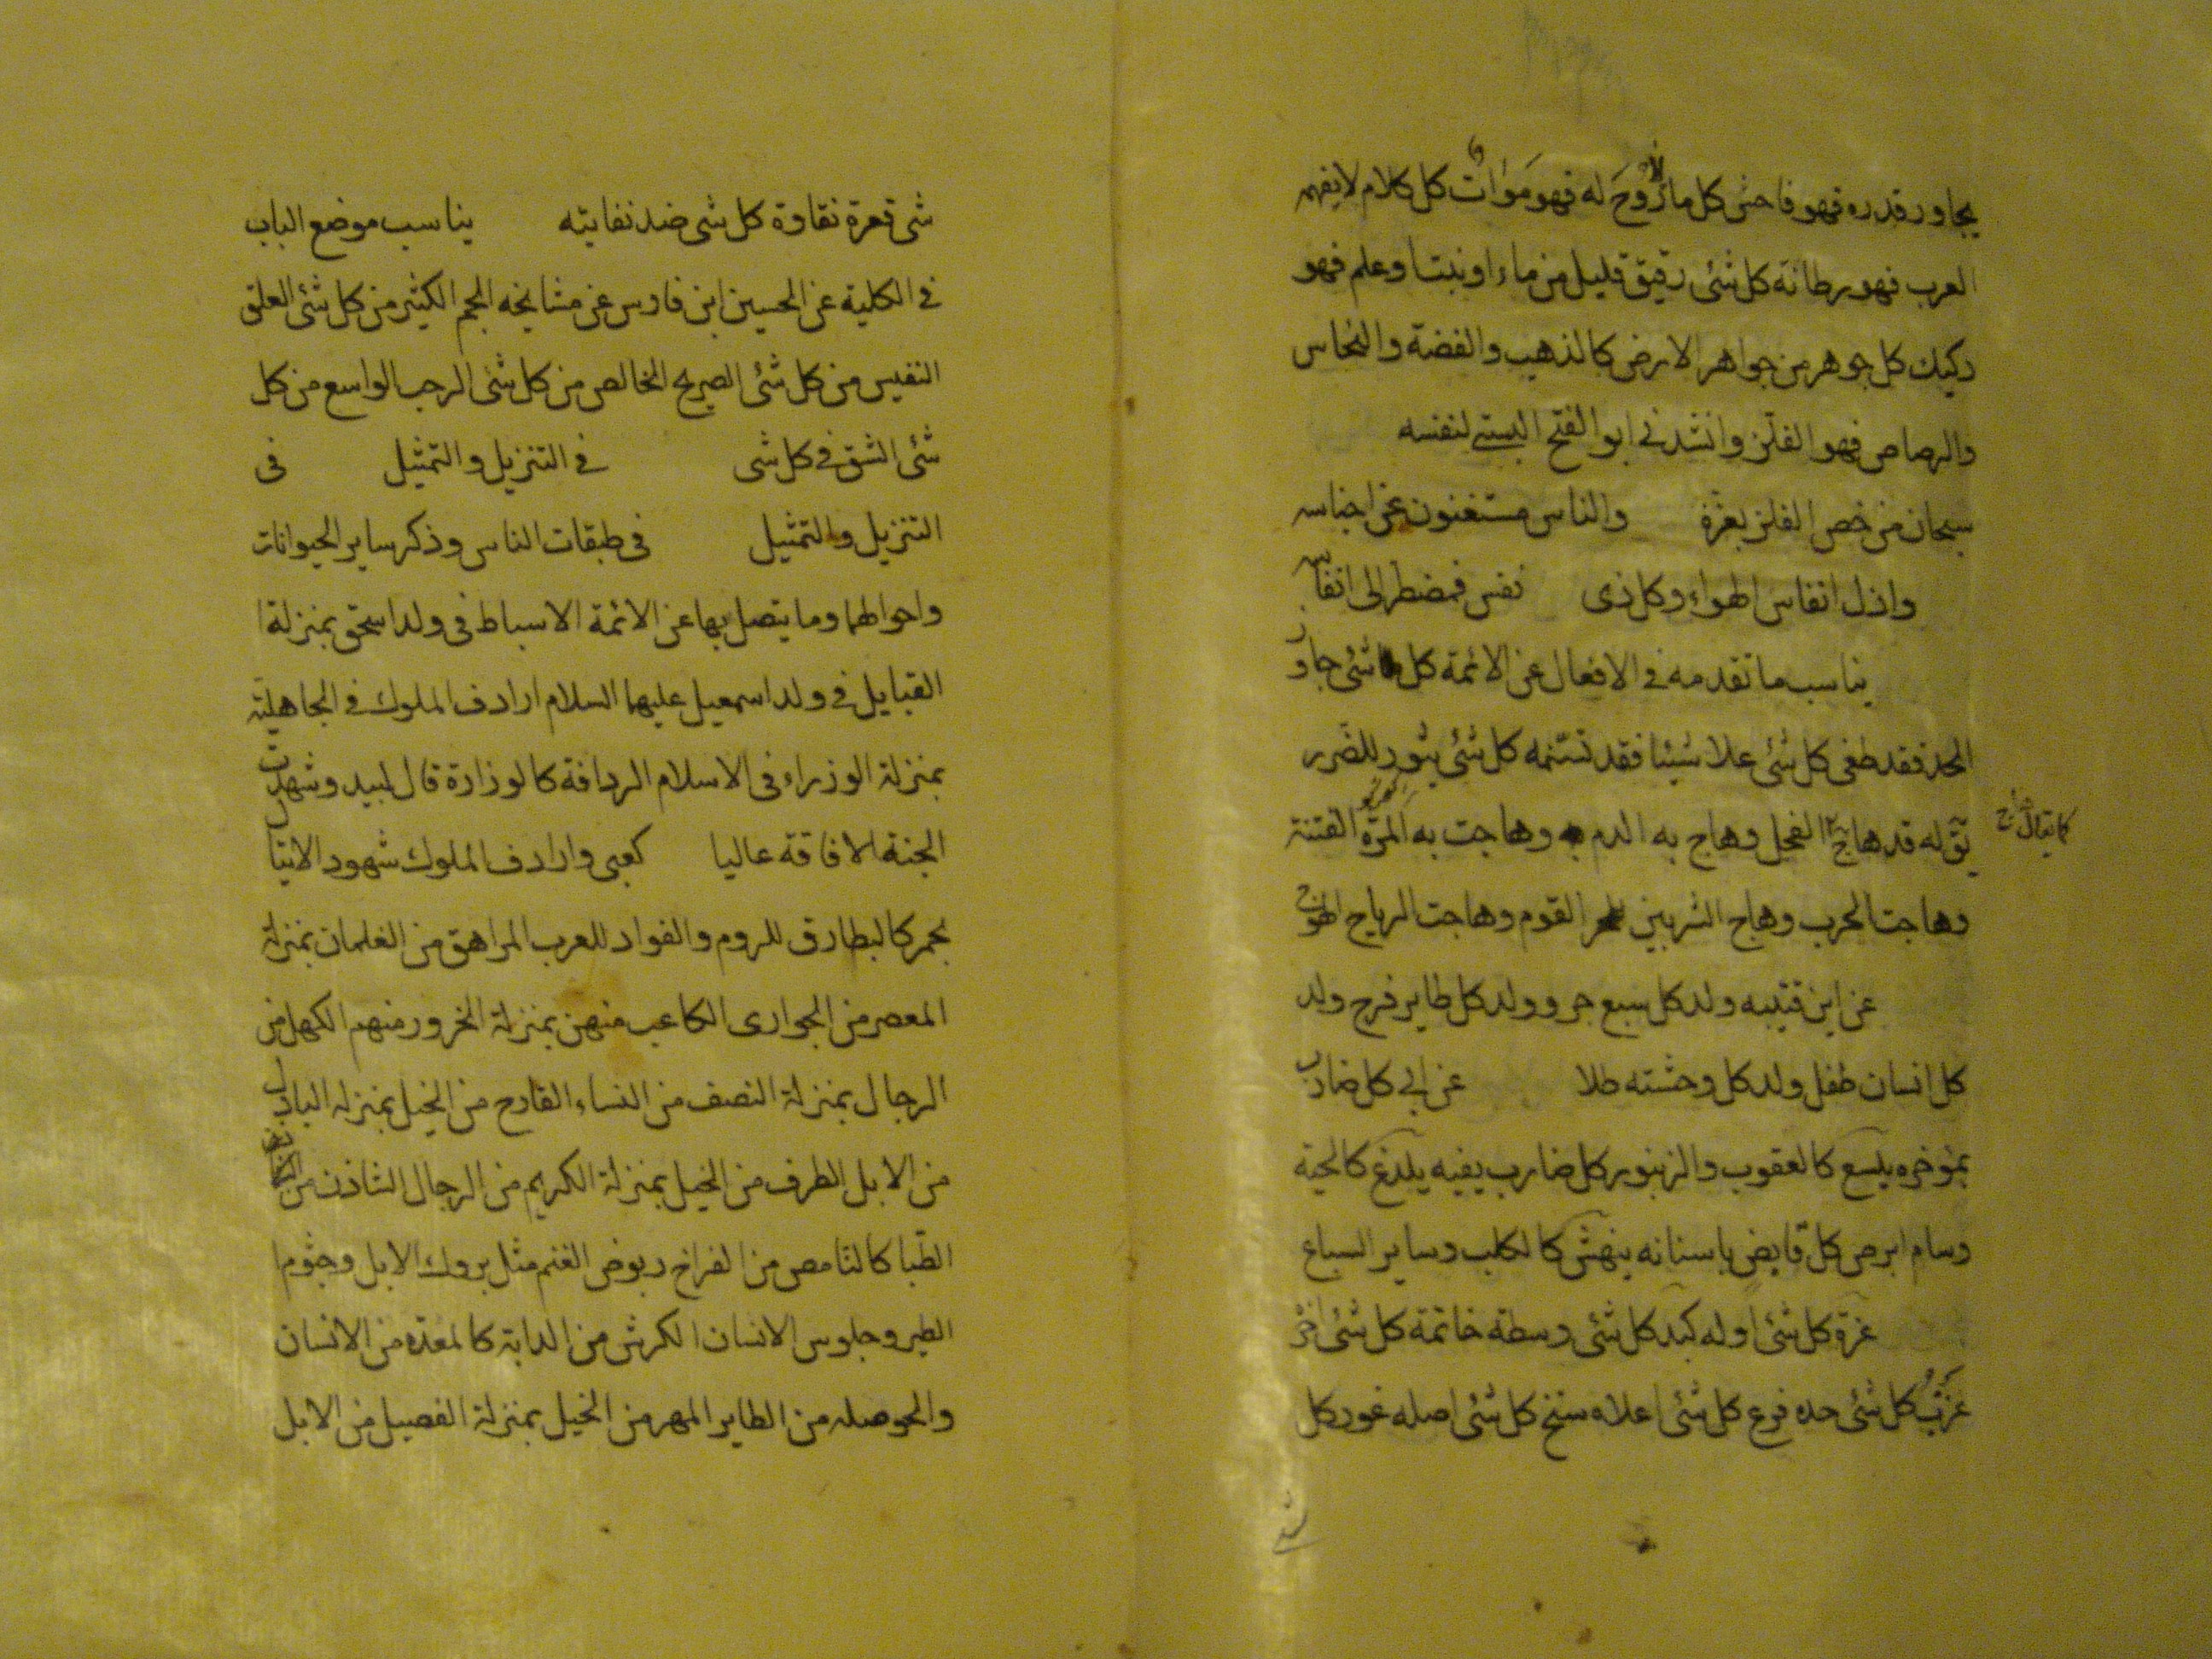 يجاور قدره فهو فاحش كل ما لا روح له فهو موات كل كلام لا يفهمه
العرب فهو رطانة كل شئ رقيق قليل من ماء او نبت او علم فهو
ركيك كل جوهر من جواهر الارض كالذهب والفضة والنحاس
والرصاص فهو الفلز وانشدنى ابو الفتح البستى لنفسه
سبحان من خص الفلز بعزة والناس مستغنون عن اجناسه
واذل انفاس الهواء وكل ذى نفس فمضطر الى انفاسه
يناسب ما تقدمه فى الافعال عن الائمة كل شئ جاوز
الحد فقد طغى كل شئ علا شيئا فقد تسنمه كل شئ يثور للضرر
يق له قد هاج كما يقال هاج الفحل وهاج به الدم وهاجت به المرة الفتنة
وهاجت الحرب وهاج الشر بين القوم وهاجت الرياح الهوج
عن ابن قتيبه ولد كل سبع جرو ولد كل طاير فرج ولد
كل انسان طفل ولد كل وحشته طلا عن ابى كل ضارب
بموخره يلسع كالعقوب والزنبور كل ضارب بفيه يلدغ كالحية
وسام ابرص كل قابض باسنانه ينهش كالكلب وساير السباع
غرة كل شئ اوله كبد كل شئ وسطه خاتمة كل شئ اخره
غرب كل شئ حده فرع كل شئ اعلاه سنخ كل شئ اصله غور كل
شى قعرة نقاوة كل شى ضد نفايته يناسب موضع الباب
فى الكلية عن الحسين ابن فارس عن مشايخه الجم الكثير من كل شئ العلق
النفيس من كل شئ الصريح الخالص من كل شئ الرحب الواسع من كل
شئ الشق فى كل شى فى التنزيل والتمثيل فى
التنزيل والتمثيل فى طبقات الناس وذكر ساير الحيوانات
واحوالهما وما يتصل بها عن الائمة الاسباط فى ولد اسحق بمنزلة
القبايل فى ولد اسمعيل عليهما السلام ارادف الملوك فى الجاهلية
بمنزلة الوزراء فى الاسلام الردافة كالوزارة قال لبيد وشهدت
الجنة الافاقة عاليا كعبى وارادف الملوك شهود الاقيال
بحمر كالبطارق للروم والقواد للعرب المراهق من الغلمان بمنزلة
المعصر من الجوارى الكاعب منهن بمنزلة الخرور منهم الكهل من
الرجال بمنزلة النصف من النساء القارح من الخيل بمنزله البازل
من الابل الطرف من الخيل بمنزلة الكريم من الرجال الشاذن من
الظبا كالناهص من الفراخ ربوض الغنم مثل بروك الابل وجثوم
الطير وجلوس الانسان الكرش من الدابة كالمعدة من الانسان
والحوصله من الطاير المهر من الخيل بمنزلة الفصيل من الابل